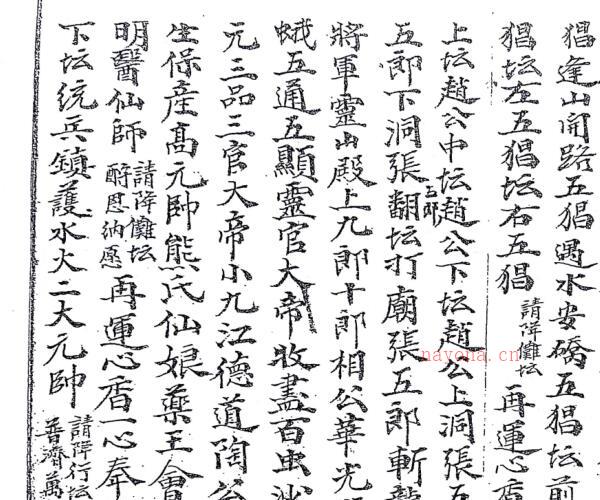 猖逢山開路五猖遇水安橋五猖坛前
猖坛左五猖坛右五猖請降儺坛再運心香
上坛趙公中坛趙公下坛趙公上洞張五
五郎下洞張五郎翻坛打廟張五郎斬龍
將軍靈山殿上九郎十郎相公華光
蛾五通五顯靈官大帝收盡百虫
元三品三官大帝小九江德道陶公
生保産高元帥熊氏仙娘藥王會
明醫仙師請降儺坛酧恩纳愿再運心香一心奉
下坛统兵鎮護水火二大元帥請降行坛普濟萬
nayona.cn